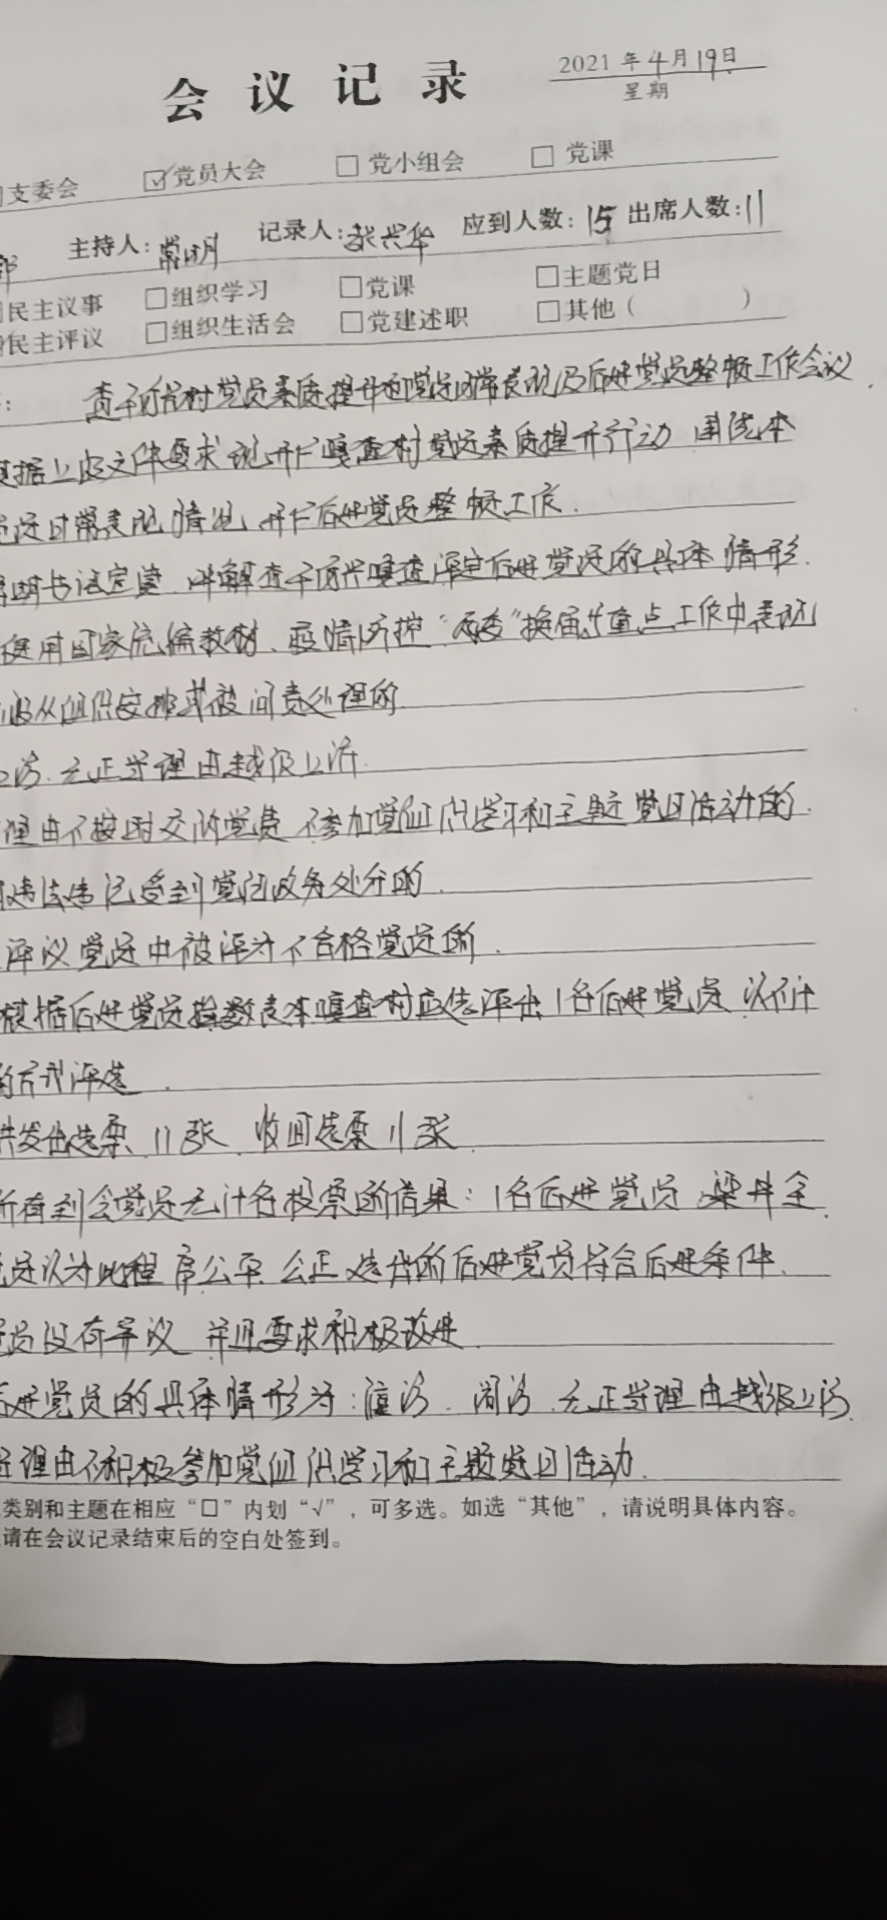 会议记录
2021年4月19日
星期
支委会 ☑党员大会 □党小组会 □党课
主持人:常明 记录人:张兴华 应到人数:15 出席人数:11
民主议事 □组织学习 □党课 □主题党日
民主评议 □组织生活会 □党建述职 □其他( )
查干 村党员素质提升和党员日常表现及后进党员整顿工作会议.
根据上级文件要求 现开广嘎查村党员素质提升行动 围绕本
党员日常表现情况 开广后进党员整顿工作.
讲解查干 嘎查评定后进党员的具体情形.
使用国家统编教材、疫情防控“两委”换届等重点工作中表现
服从组织安排或被问责处理的
上访.无正当理由越级上访.
理由不按时交纳党费 不参加党组织学习和主题党日活动的.
违法违纪受到党内政务处分的.
评议党员中被评为不合格党员的.
根据后进党员 数 本嘎查村应选评出1名后进党员 以不计
的方式评选.
共发出选票11张 收回选票11张
所有到会党员无计名投票的结果:1名后进党员 梁井全.
党员认为此程序公平 公正 选出的后进党员符合后进条件.
党员没有异议 并且要求积极改进
后进党员的具体情形为: 访.闹访.无正当理由越级上访.
理由不积极参加党组织学习和主题党日活动.
类别和主题在相应“□”内划“√”,可多选。如选“其他”,请说明具体内容。
请在会议记录结束后的空白处签到。